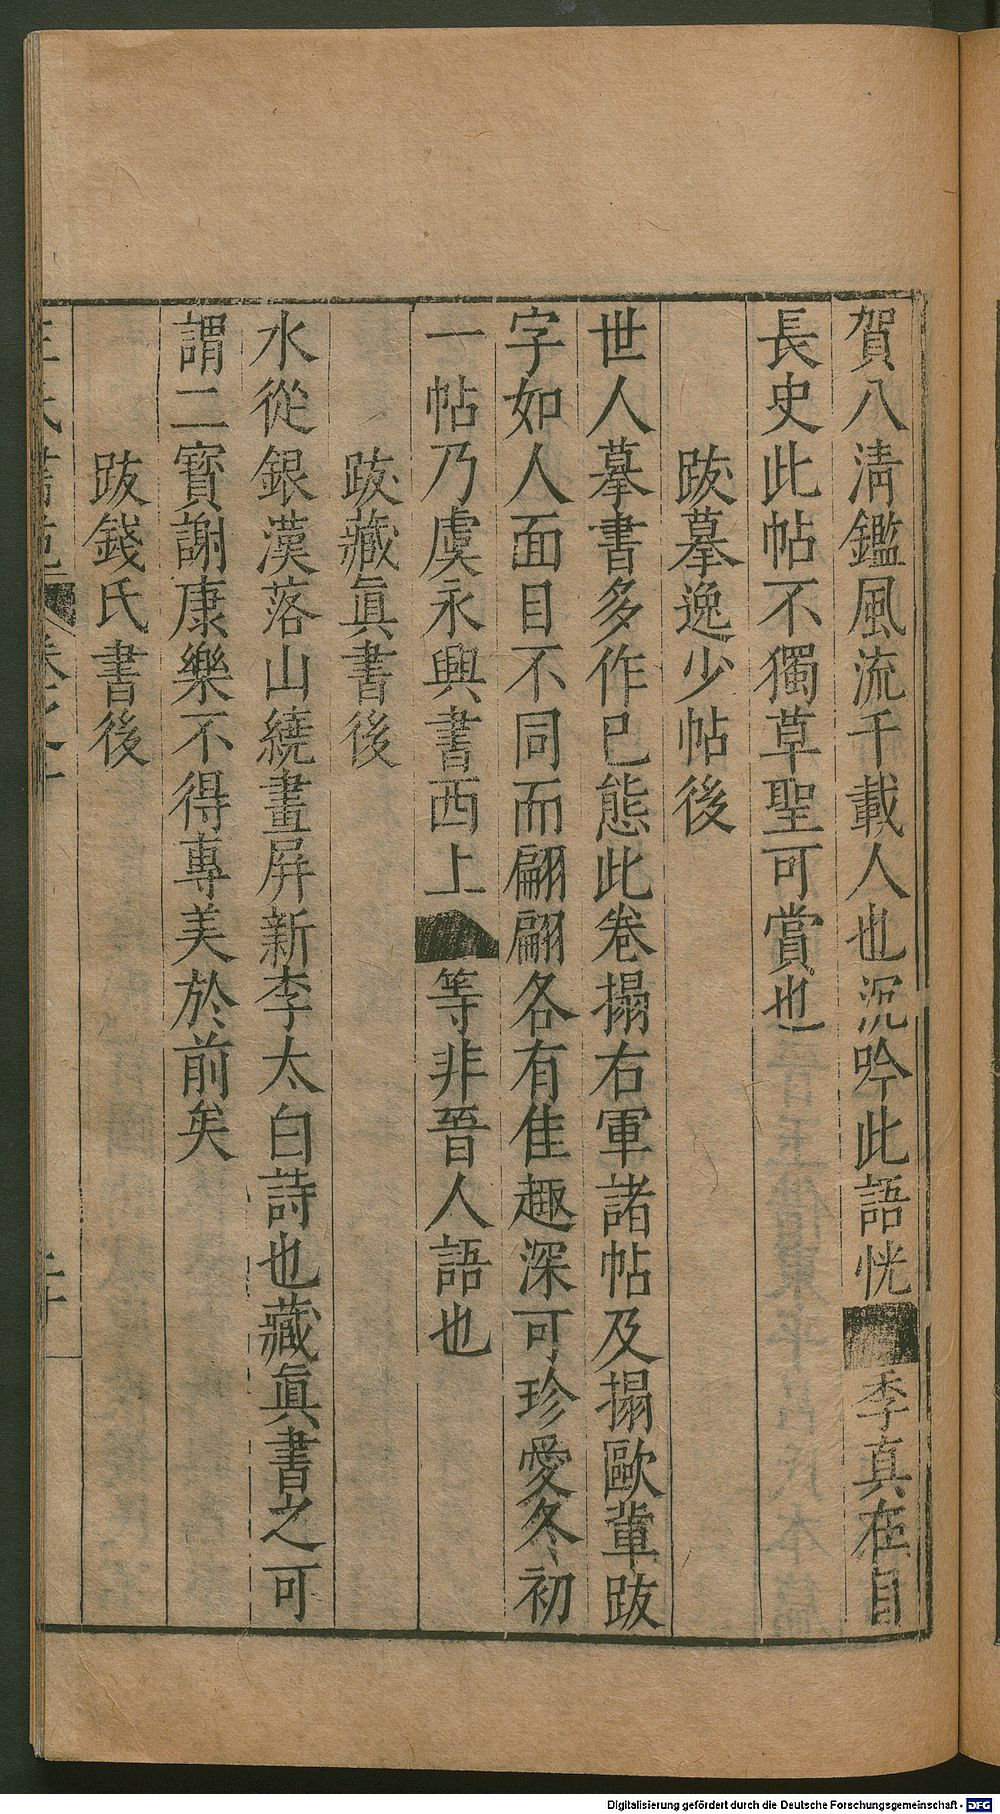 賀八清鑑風流千載人也沉吟此語恍季真在目
長史此帖不獨草聖可賞也
跋摹逸少帖後
世人摹書多作已態此卷搨右軍諸帖及搨歐軰跋
字如人面目不同而翩翩各有佳趣深可珍愛冬初
一帖乃虞永興書西上等非晉人語也
跋藏眞書後
水從銀漢落山繞畫屏新李太白詩也藏眞書之可
謂二寳謝康樂不得專美於前矣
跋錢氏書後
Digitalisierung gefördert durch die Deutsche Forschungsgemeinschaft - DFG